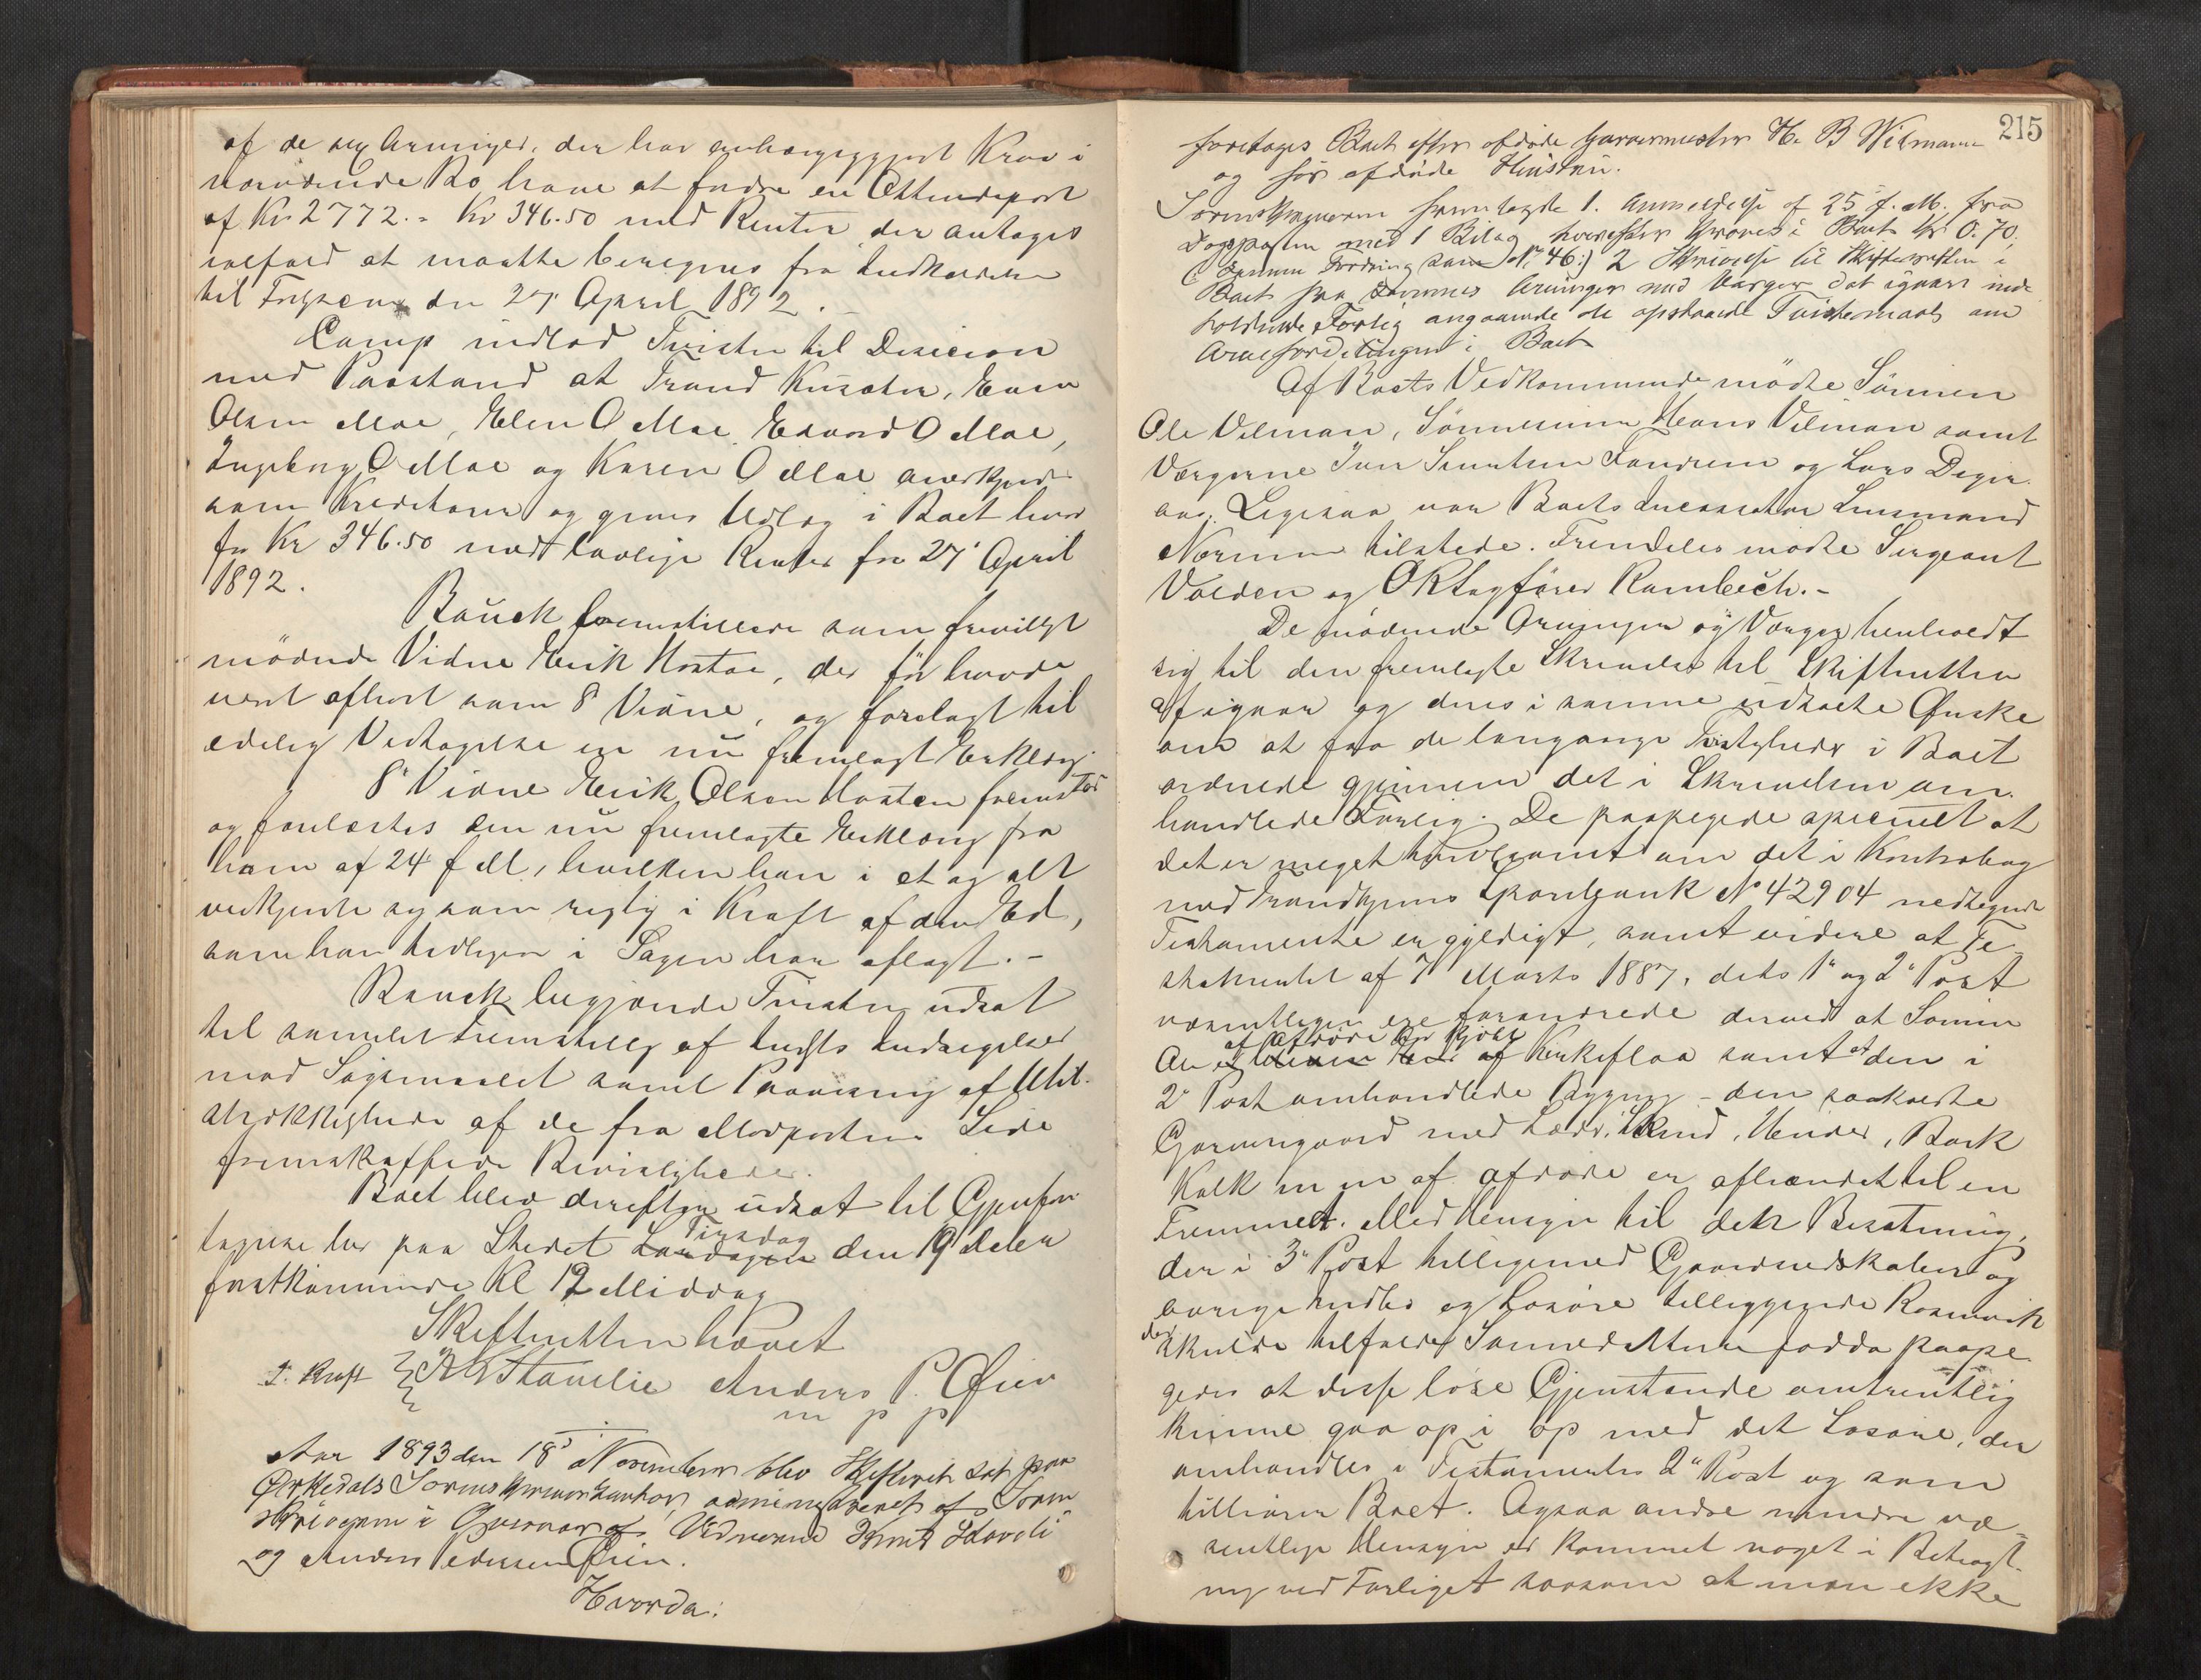 af de sex Arvinger, der har anhængiggjort Krav i
nærværende Bo have at fordre en Ottendepart
af Kr 2772. = Kr 346.50 med Renter der antages
ialfald at maatte beregnes fra Indkaldelse
til den 27 April 1892. -
Camp indlod Tvisten til Decision
med Paastand at Trond Kusater, Even
Olsen Moe, Elen O Moe, Edvard O Moe,
Ingeborg O Moe og Karen O Moe anerkjendes
som Kreditorer og gives Udlæg i Boet hver
for Kr 346.50 med lovlige Renter fra 27 April
1892.
Bauck fremstillede som frivilligt
mødende Vidne Erik Hostoe, der før havde
været afhørt som 8 Vidne, og forelagt til
edelig Vedtagelse en nu fremlagt Erklæring
8' Vidne Erik Olsen Hosten fremstod
og forelæstes den nu fremlagte Erklæring fra
ham af 24 f M, hvilken han i et og alt
vedkjendte sig som rigtig i Kraft af den Ed,
som han tidligere i Sagen har aflagt. -
Bauck begjærede Tvisten udsat
til samlet Fremstilling af Indsigelser
mod Søgsmaalet samt Paavisning af Util-
strækkeligheden af de fra Modpartens Side
fremskaffede Bevisligheder.
Boet blev derefter udsat til Gjenfor
tagelse her paa Stedet Tirsdag den 19 dennes
førstkommende Kl 12 Middag
Skifteretten hævet
T. Kraft A K Stavelie Anders P. Øien
m p p
Aar 1893 den 18' November blev Skifteret sat paa
Ørkedals Sorenskriverkontor, administreret af Soren
skriveren i Overvær af Vidnerne Knut Skovli
og Anders Pedersen Øien.
Hvorda:
215
foretoges Boet efter afdøde Garvermester H. B Wilmann
og før afdøde Hustru.
Sorenskriveren fremlagde 1. Anmeldelse af 25 f. M. fra
med 1 Bilag, hvorefter kræves i Boet Kr 0.70,
( Fordring som No 46:) 2 Skrivelse til Skifteretten i
Boet fra Arvinger med Værger dat igaar inde
holdende Forlig angaaende de opstaaede Tvistemaal om
Arvefordelingen i Boet
Af Boets Vedkommende mødte Sønnen
Ole Velman, Sønnesønnen Hans Velman samt
Værgerne Iver Fandrem og Lars Deger
aas. Ligesaa var Boets Incassator Lensmand
Norum tilstede. Fremdeles mødte Sergeant
Volden og O R Sagfører Rambech. -
De mødende Arvinger og Værger henholdt
sig til den fremlagte Skrivelse til Skifteretten
af igaar og deres i samme udtalte Ønske
om at faa de langvarige Tvistigheder i Boet
ordnede gjennem det i Skrivelsen om-
handlede Forlig. De paapegede specielt at
det er meget tvivlsomt om det i Kontrabog
med Trondhjems Sparebank No 42904 nedlagte
Testamente er gyldigt, samt videre at Te
stamentet af 7 Marts 1887, dets 1' og 2' Post
væsentligen ere forandrede derved at Sønnen
Ole af Afdøde har kjøbt Kirkefloa samt at den i
2' Post omhandlede Bygning - den saakaldte
Garvergaard med Læder, Skind, Huder, Bark
Kalk m m af afdøde er afhændet til en
Fremmed. Med Hensyn til dets Besætning,
der i 3' Post tilligemed Gaardsredskaber og
øvrige Indbo og Løsøre tilliggende Rosenvik
der skulde tilfalde Sønnedatteren Jodda paape
gedes at disse løse Gjenstande omtrentlig
kunne gaa op i op med det Løsøre, der
omhandles i Testamentets 2' Post og som
tilhører Boet. Ogsaa andre mindre væ-
sentlige Hensyn er kommet noget i Betragt-
ning ved Forliget saasom at man ikke